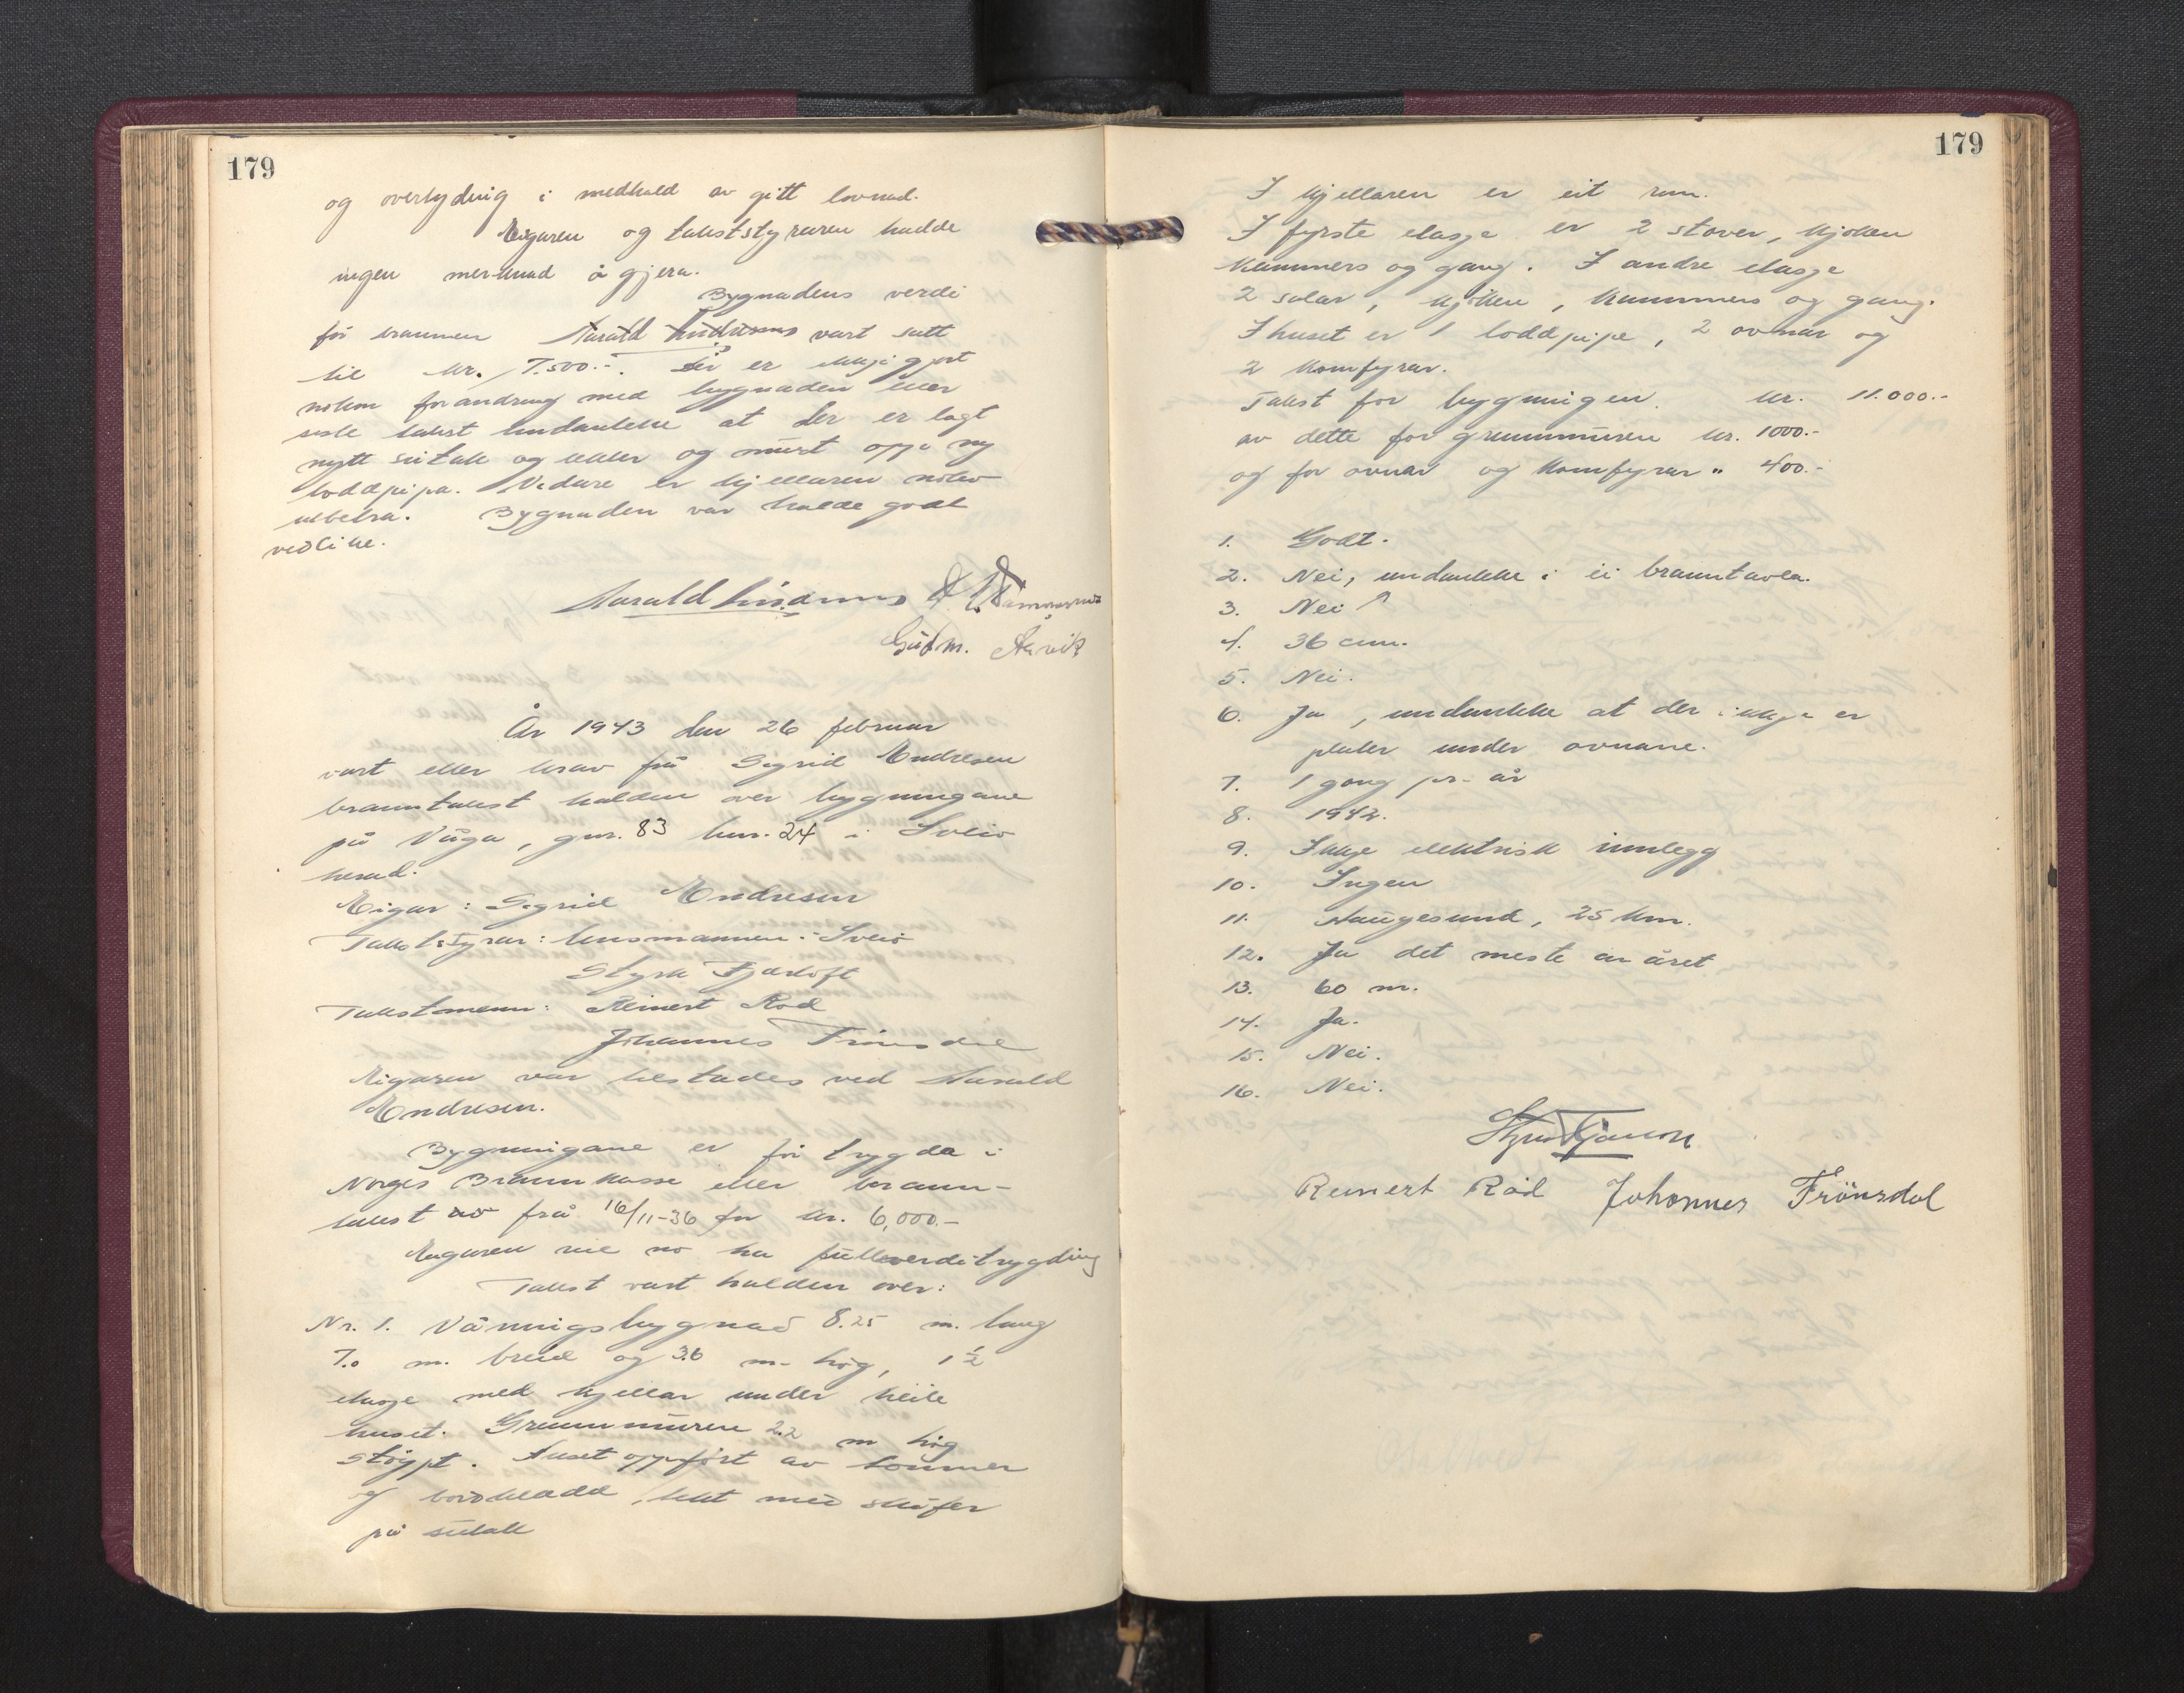 179
og overtyding i medhald av gitt lovnad.
Eigaren og takststyraren hadde
ingen merknad å gjera.
Bygnadens verdi
før brannen Harald vart sett
til kr. 7.500.-. Der er ikkje gjort
nokon forandring med bygnaden etter
siste takst undanteke at der er lagt
nytt sutak og heller og murt opp ny
loddpipa. Vidare er kjellaren noko
utbetra. Bygnaden var halde godt
vedlike.
Harald
Gutm. Åsvik
År 1943 den 26 februar
vart etter krav frå Sigrid Andresen
branntakst halden over bygningane
på Våga, gnr. 83 bnr. 24 i Sveio
herad.
Eigar: Sigrid Andresen
Takststyrar: lensmannen i Sveio
Styrk Fjærtoft
Takstmenn: Reinert Rød
Johannes Frönsdal
Eigaren var tilstades ved Harald
Andresen.
Bygningane er for trygda i
Norges Brannkasse etter brann-
takst av frå 16/11-36 for kr. 6,000.-
Eigaren vil no ha fullverditrygding
Takst vart halden over:
Nr. 1. Våningsbygnad 8.25 m. lang
7.0 m. breid og 3.6 m. høg, 1 1/2
etasje med kjellar under heile
huset. Grunnmuren 2.2 m høg
støypt. Huset oppført av tømmer
og bordkledd, tekt med skifer
på sutak
179
I kjellaren er eit rum.
I fyrste etasje er 2 stover, kjøken
kammers og gang. I andre etasje
2 salar, kjøken, kammers og gang.
I huset er 1 loddpipe, 2 ovnar og
2 komfyrar.
Takst for bygningen kr. 11.000.-
av dette for grunnmuren kr. 1000.-
og for ovnar og komfyrar " 400.-
1. Godt.
2. Nei, undanteke i ei branntavla.
3. Nei
4. 36 cm.
5. Nei.
6. Ja, undanteke at der ikkje er
plater under ovnane.
7. 1 gong pr. år
8. 1942.
9. Ikkje elektrisk innlegg
10. Ingen
11. Haugesund, 25 km.
12. Ja det meste av året
13. 60 m.
14. Ja.
15. Nei.
16. Nei.
Styrk Fjærtoft
Reinert Rød Johannes Frönsdal